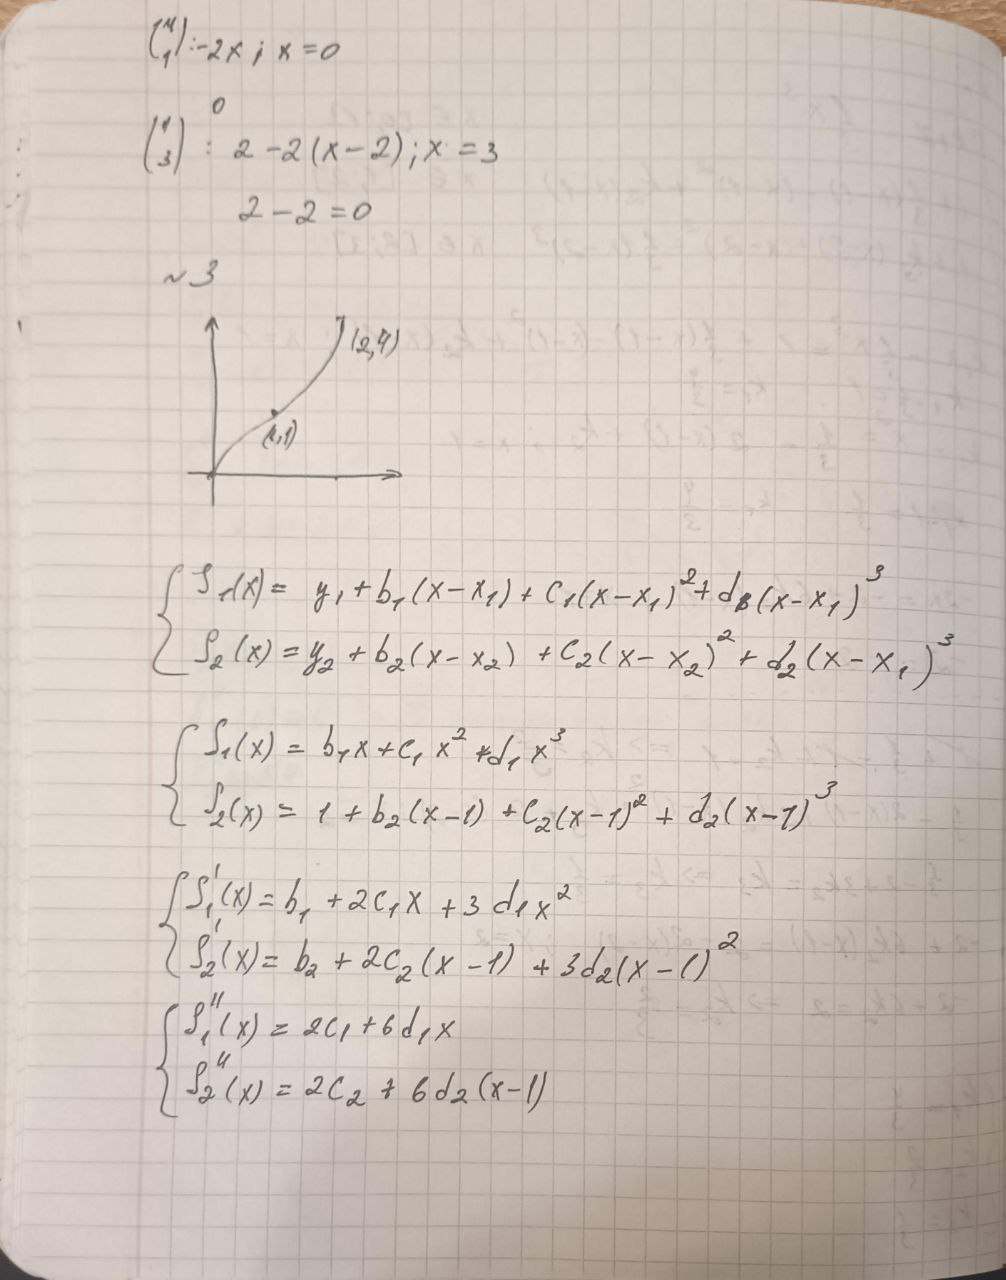 (4/1): -2x; x=0
0
(1/3): 2-2(x-2); x=3
2-2=0
~3
(2,4)
(1,1)
S₁(x) = y₁+b₁(x-x₁)+C₁(x-x₁)²+d₁(x-x₁)³
S₂(x) = y₂+b₂(x-x₂)+C₂(x-x₂)²+d₂(x-x₁)³
S₁(x) = b₁x+c₁x²+d₁x³
S₂(x) = 1+b₂(x-1)+C₂(x-1)²+d₂(x-1)³
S₁'(x) = b₁+2C₁x+3d₁x²
S₂'(x) = b₂+2C₂(x-1)+3d₂(x-1)²
S₁''(x) = 2C₁+6d₁x
S₂''(x) = 2C₂+6d₂(x-1)